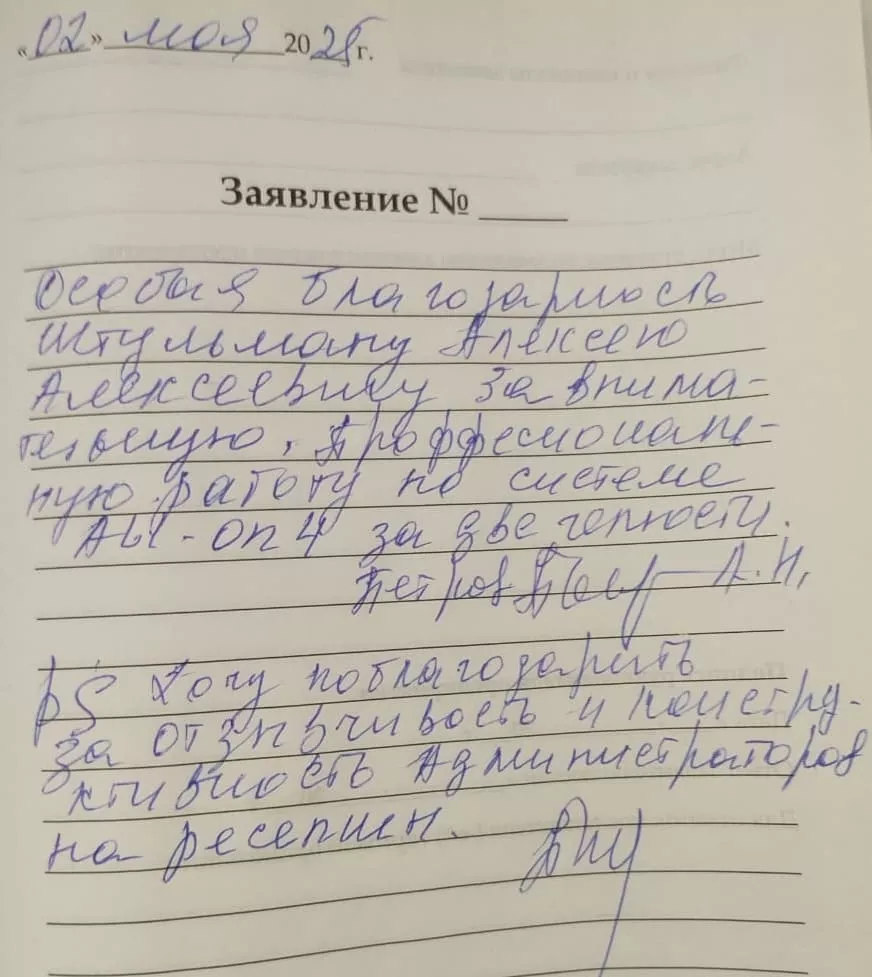 «02» мая 2025г.
Заявление № ____
Особая благодарность
Штульману Алексею
Алексеевичу за внима-
тельную, проффесиональ-
ную работу по системе
All-on 4 за две челюсти.
Петров А.Н,
PS Хочу поблагодарить
за отзывчивость и констру-
ктивность Администраторов
на ресепшен.